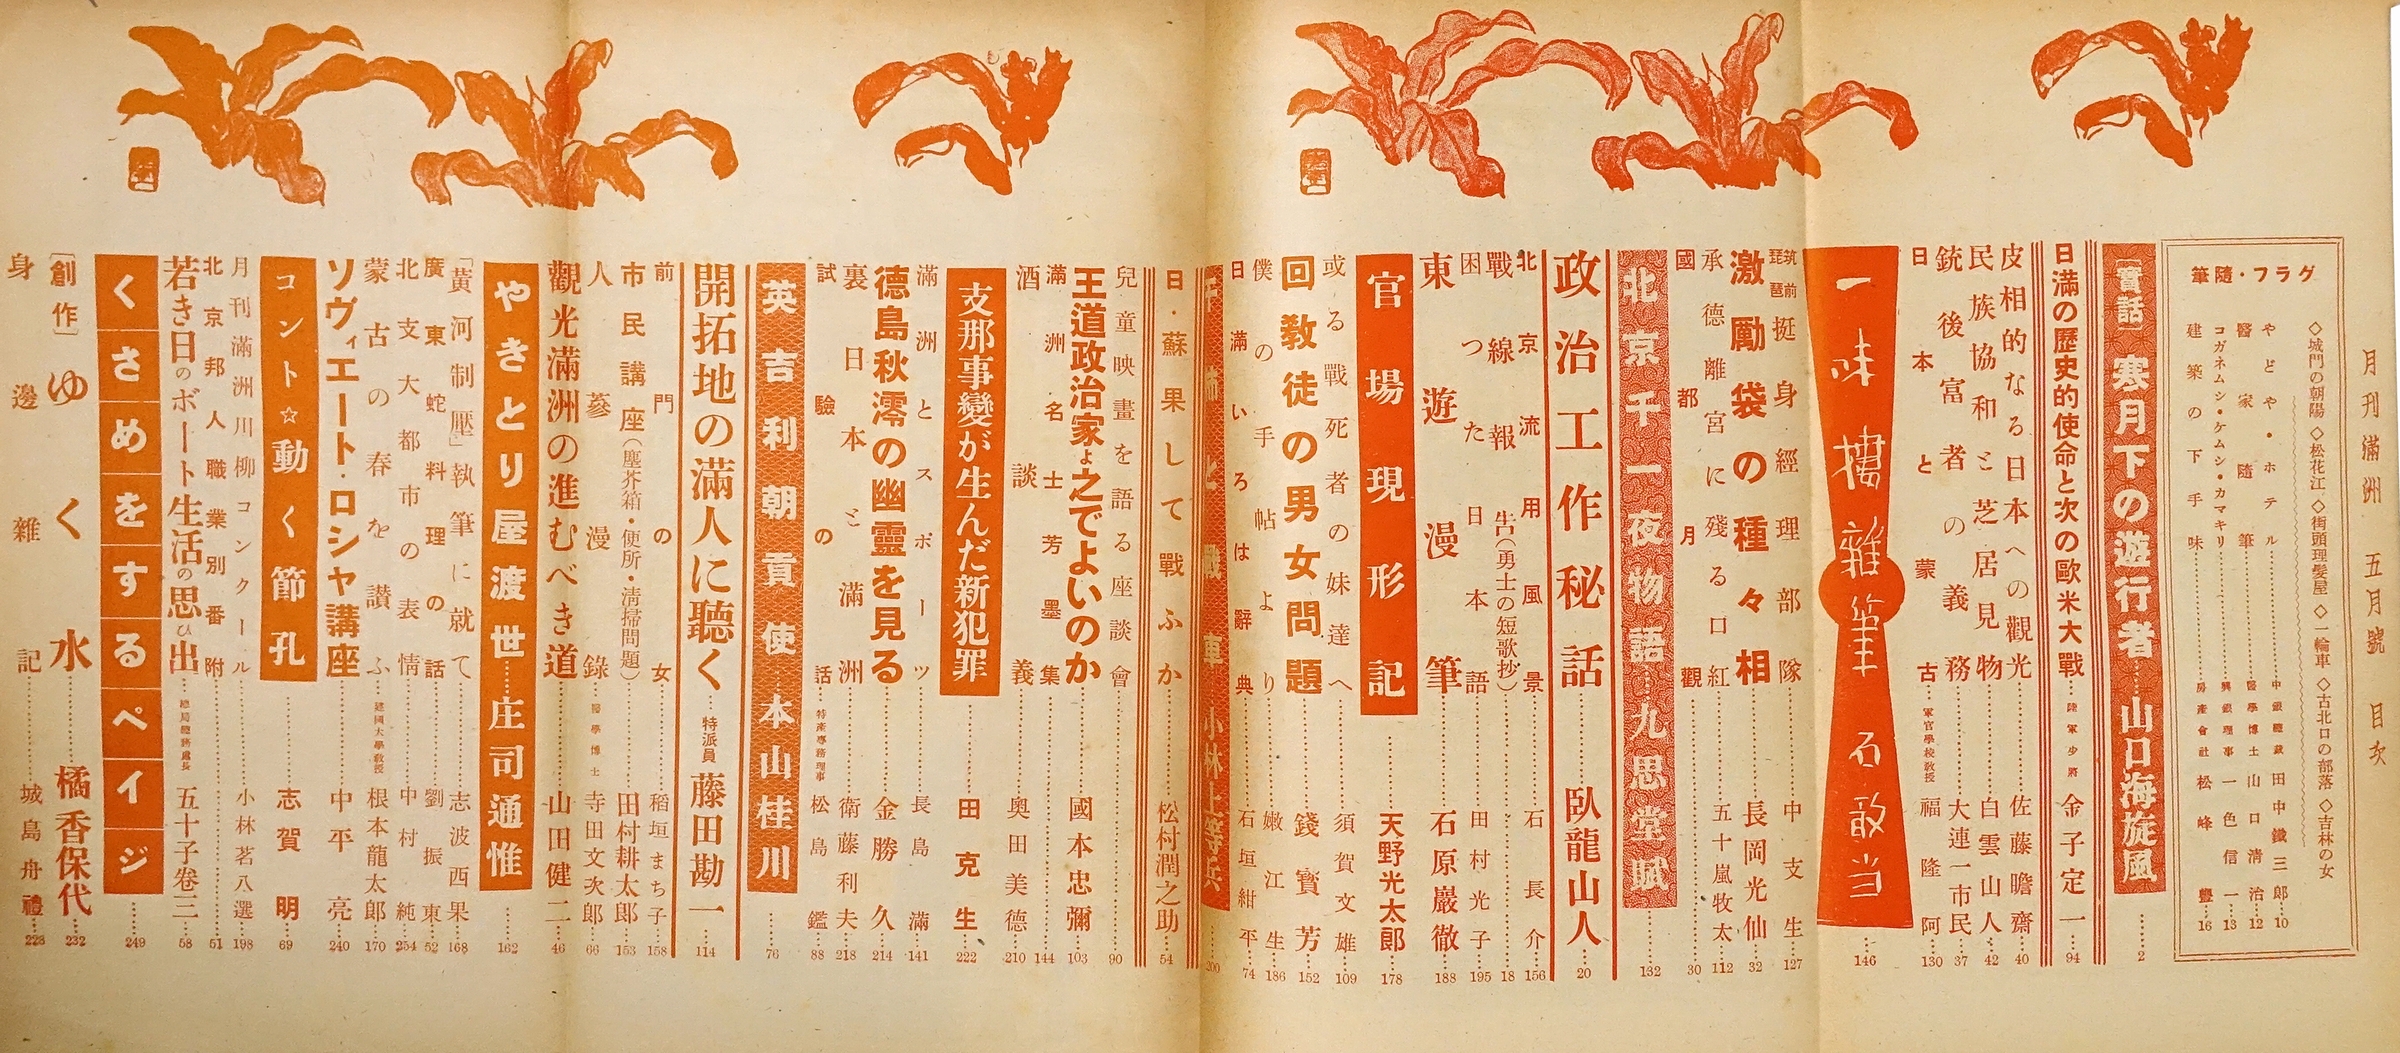 月刊滿洲 五月號 目次
グラフ・隨筆
◇城門の朝陽 ◇松花江 ◇街頭理髮屋 ◇一輪車 ◇古北口の部落 ◇吉林の女
やどや・ホテル……中銀總裁 田中鐵三郎…10
醫家隨筆……醫學博士 山口清治…12
コガネムシ・ケムシ・カマキリ……興銀理事 一色信一…13
建築の下手味……房產會社 松峰豐…16
〔實話〕寒月下の遊行者……山口海旋風……2
日滿の歷史的使命と次の歐米大戰……陸軍少將 金子定一…94
皮相的なる日本への觀光……佐藤瞻齋…40
民族協和と芝居見物……白雲山人…42
銃後富者の義務……大連一市民…37
日本と蒙古……軍官學校敎授 福隆阿…130
一味摟雜筆 石敢当……146
筑前琵琶 挺身經理部隊……中支生…127
激勵袋の種々相……長岡光仙…32
承德離宮に殘る口紅……五十嵐牧太…112
國都月觀……30
北京千一夜物語……九思堂賦……132
政治工作秘話……臥龍山人…20
北京流用風景……石長介…156
戰線報告(勇士の短歌抄)……18
困つた日本語……田村光子…195
東遊漫筆……石原巖徹…188
官場現形記……天野光太郎…178
或る戰死者の妹達へ……須賀文雄…109
回敎徒の男女問題……錢寳芳…152
僕の手帖より……嫩江生…186
日滿いろは辭典……石垣紺平…74
戰車 小林上等兵……200
日・蘇果して戰ふか……松村潤之助…54
兒童映畫を語る座談會……90
王道政治家よ之でよいのか……國本忠彌…103
滿洲名士芳墨集……144
酒談義……奧田美德…210
支那事變が生んだ新犯罪……田克生…222
滿洲とスポーツ……長島滿…141
德島秋澪の幽靈を見る……金勝久…214
裏日本と滿洲……衛藤利夫…218
試驗の話……特產專務理事 松島鑑…88
英吉利朝貢使……本山桂川……76
開拓地の滿人に聽く……特派員 藤田勘一…114
前門の女……稻垣まち子…158
市民講座(塵芥箱・便所・清掃問題)……田村耕太郎…153
人蔘漫錄……醫學博士 寺田文次郎…66
觀光滿洲の進むべき道……山田健二…46
やきとり屋渡世……庄司通惟……162
「黃河制壓」執筆に就て……志波西果…168
廣東蛇料理の話……劉振東…52
北支大都市の表情……中村純…254
蒙古の春を讃ふ……建國大學敎授 根本龍太郎…170
ソヴィエート・ロシヤ講座……中平亮…240
コント☆動く節孔……志賀明…69
月刊滿洲川柳コンクール……小林茗八選…198
北京邦人職業別番附……51
若き日のボート生活の思ひ出……總局總務處長 五十子卷三…58
くさめをするペイジ……249
〔創作〕ゆく水……橘香保代…232
身邊雜記……城島舟禮…228